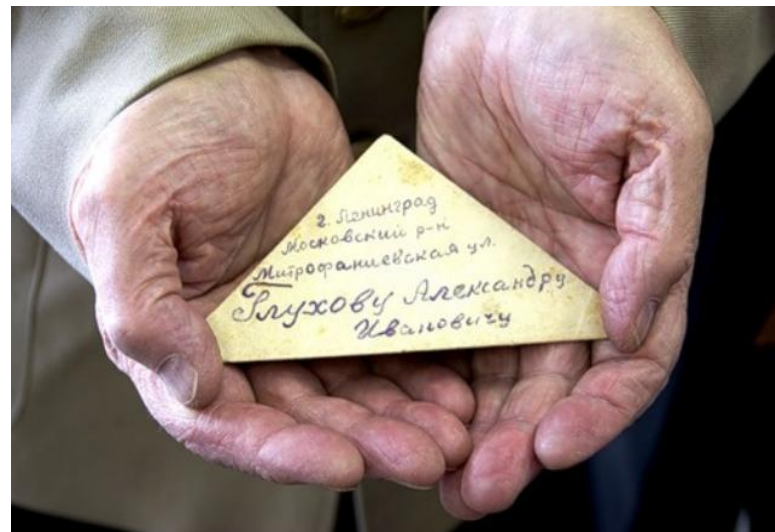 г. Ленинград
Московский р-н
Митрофаниевская ул.
Глухову Александру
Ивановичу